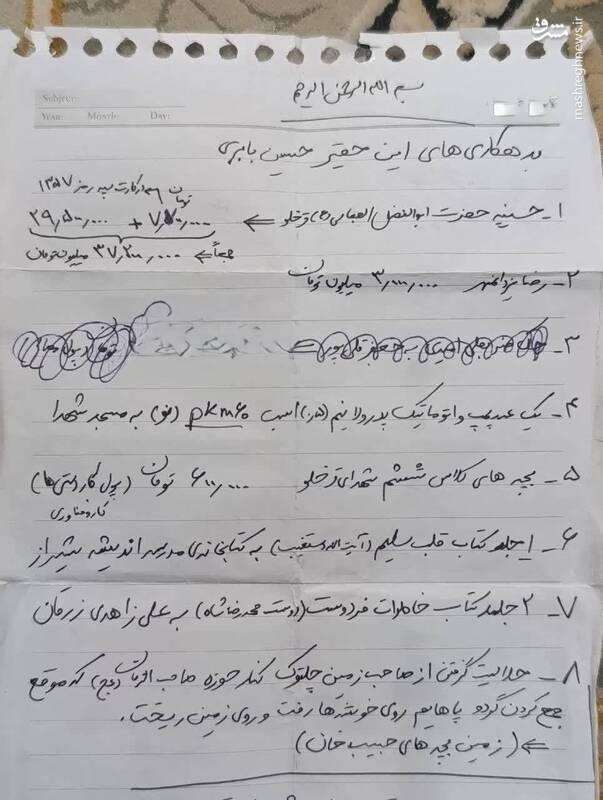 مشرق
mashreghnews.ir
بسم الله الرحمن الرحیم
Subject:
Year: Month: Day:
بدهکاری های این حقیر حسین بابری
۱- حسینیه حضرت ابوالفضل العباس (ع) قره‌خلو ⇐ ۲۹,۵۰۰,۰۰۰ + ۷,۷۰۰,۰۰۰ تومان
جمعاً ⇐ ۳۷,۲۰۰,۰۰۰ میلیون تومان
۲- رضا یزدانمهر ۳,۰۰۰,۰۰۰ میلیون تومان
۳-
۴- یک عدد پمپ واتوماتیک پدرولا نیم (۰/۵) اسب pkm60 (نو) به مسجد شهدا
۵- بچه های کلاس ششم شهدای قره‌خلو ۶۰۰,۰۰۰ تومان (پول کاردستی ها)
کاروفناوری
۶- ۱ جلد کتاب قلب سلیم (آیت الله دستغیب) به کتابخانه‌ی مدرسه اندیشه شیراز
۷- ۲ جلد کتاب خاطرات فردوست (دوست محمدرضا شاه) به علی زاهدی زرقان
۸- حلالیت گرفتن از صاحب زمین چلتوک کنار حوزه صاحب الزمان (عج) که موقع
جمع کردن گردو پاهایم روی خوشه‌ها رفت و روی زمین ریخت.
⇐ (زمین بچه های حبیب خان)